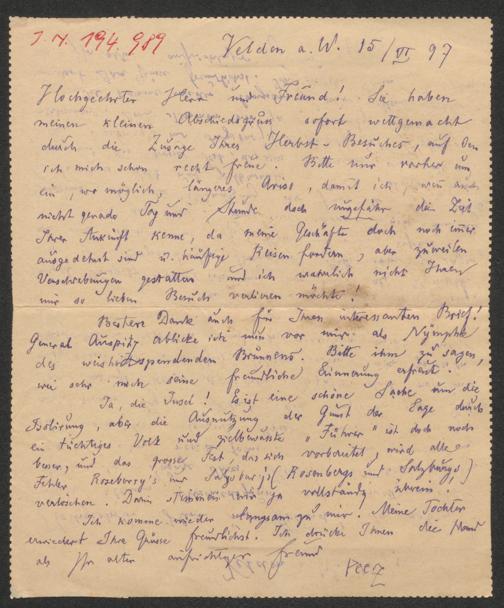 J. N. 194.989
Velden a. W. 15/VI 97
Hochgeehrter Herr und Freund! Sie haben
meinen kleinen Abschiedsgruss sofort wettgemacht
durch die Zusage Ihres Herbst-Besuches, auf den
ich mich schon recht freue. Bitte nur vorher um
ein, wo möglich, längeres Aviso, damit ich, wenn auch
nicht gerade Tag und Stunde doch ungefähr die Zeit
Ihrer Ankunft kenne, da meine Geschäfte doch noch immer
ausgedehnt sind u. häufige Reisen fordern, aber zuweilen
Verschiebungen gestatten und ich wahrlich nichts Ihren
mir so lieben Besuch verlieren möchte!
Besten Dank auch für Ihren interessanten Brief!
General Auspitz erblicke ich nun vor mir als Nymphe
des Brunnens. Bitte ihm zu sagen,
wie sehr mich seine freundliche Erinnerung erfreut!
Ja, die Insel! Es ist eine schöne Sache um die
Isolirung, aber die Ausnützung der Gunst der Lage durch
ein tüchtiges Volk und zielbewusste "Führer" ist doch noch
besser, und das grosse Fest, das sich vorbereitet, wird alle
Fehler Roseberry's und Salysbury's (Rosenbergs und Salzburgs)
verlöschen. Darin stimmen wir ja vollständig überein.
Ich komme wieder zu mir. Meine Tochter
erwiedert Ihre Grüsse freundlichst. Ich drücke Ihnen die Hand
als Ihr alter aufrichtiger Freund
Peez